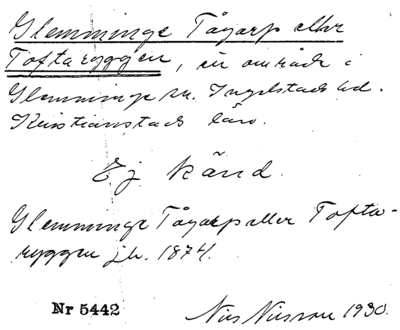 Glemminge Tågarp eller
Toftaryggen, ett område i
Glemminge sn. Ingelstads hd.
Kristianstads län.
Ej känd.
Glemminge Tågarp eller Tofta-
ryggen jb. 1874.
Nr 5442
Nils Nilsson 1930.